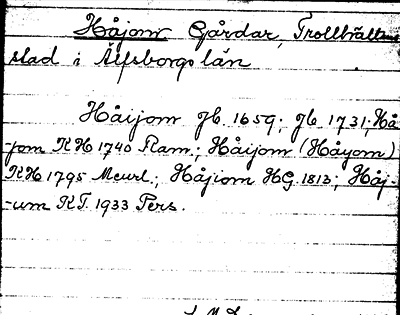 Håjom Gårdar, Trollhättans
stad i Älfsborgs län
Håijom Jb. 1659; Jb 1731; Hå-
jom KH 1740 Ram.; Håijom (Håyom)
KH 1795 Meurl.; Håjiom HG. 1813; Håj-
-um KT. 1933 Pers.